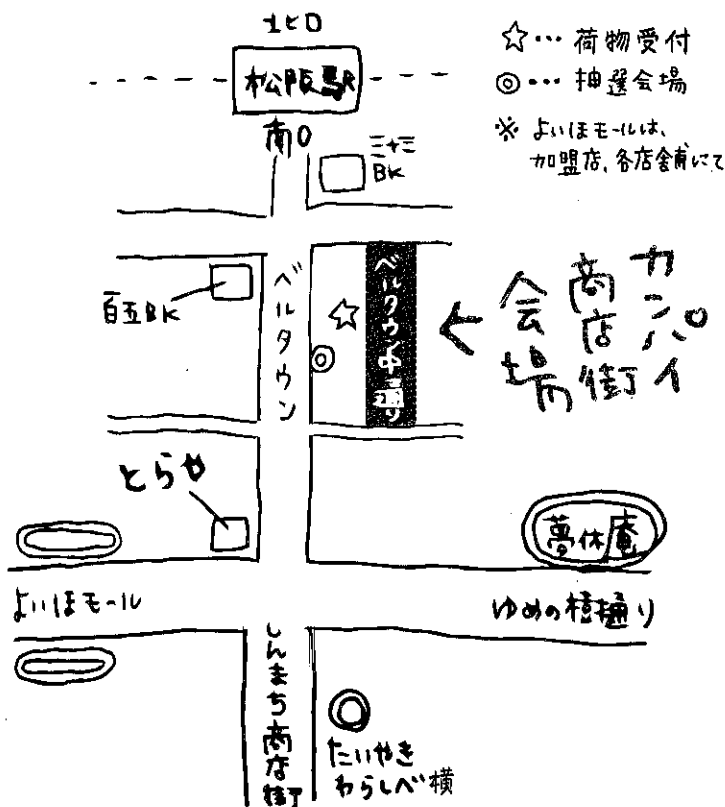 北口
松阪駅
南口
三十三
BK
☆… 荷物受付
◎… 抽選会場
※ よいほモールは、
加盟店、各店舗前にて
百五BK
ベルタウン
ベルタウン中通り
カンパイ
商店街
会場
とらや
夢休庵
よいほモール
ゆめの樹通り
しんまち商店街
たいやき
わらしべ横